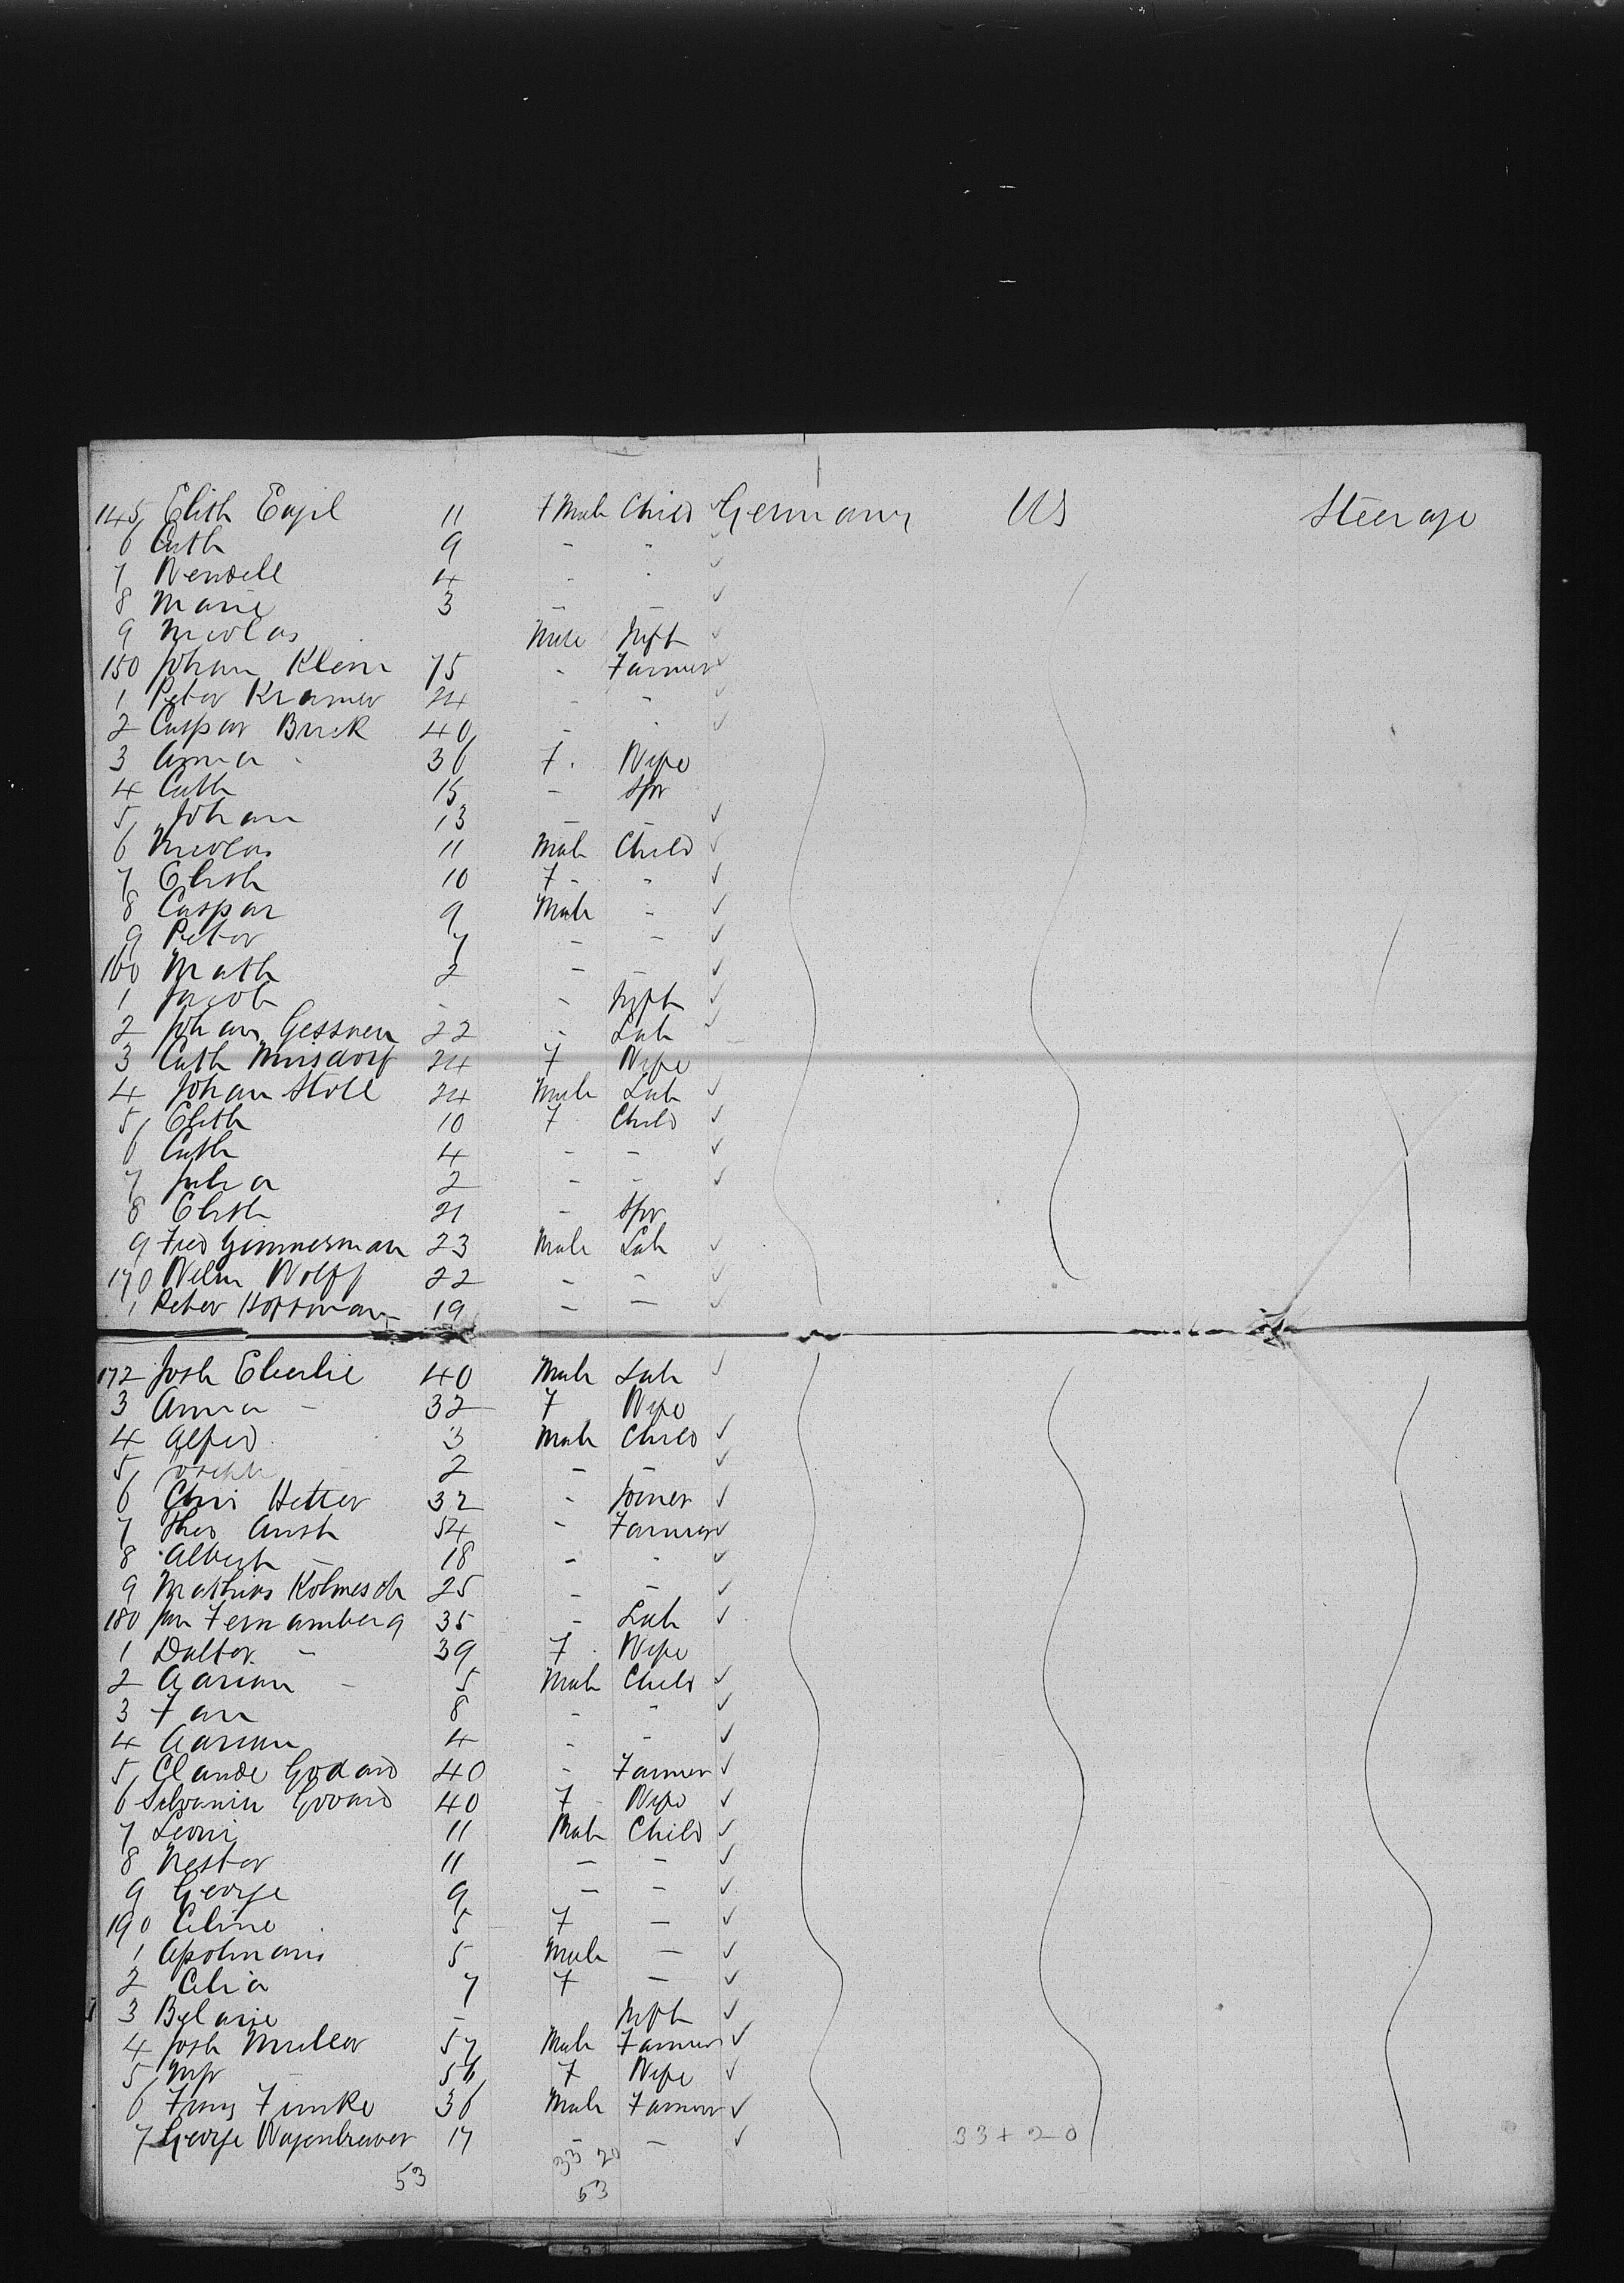 145 Elith Engil 11 F Male Child Germany US Steerage
6 Cath 9 - - ✓
7 Wendell 4 - - ✓
8 Marie 3 - - ✓
9 Nicolas Male Inft ✓
150 Johan Klein 75 - Farmer ✓
1 Peter Kramer 24 - - ✓
2 Caspar Buck 40 - - ✓
3 Anna - 36 F Wife
4 Cath 15 - Spr
5 Johan 13 - - ✓
6 Nicolas 11 Male Child ✓
7 Elith 10 F - - ✓
8 Caspar 9 Male - ✓
9 Peter 7 - - ✓
160 Math 2 - - ✓
1 Jacob - - Inft ✓
2 Johan Gessner 22 - Lab ✓
3 Cath 24 F Wife
4 Johan Stoll 24 Male Lab ✓
5 Elith 10 F Child ✓
6 Cath 4 - - ✓
7 Julia 2 - - ✓
8 Elith 21 - Spr
9 Fred Gimmerman 23 Male Lab ✓
170 Welm Wolff 22 - - ✓
1 Peter Hoffman 19 - - ✓
172 Josh Eberlie 40 Male Lab ✓
3 Anna - 32 F Wife
4 Alfred 3 Male Child ✓
5 Joseph 2 - - ✓
6 Chri Hetter 32 - Joiner ✓
7 Theo Anth 54 - Farmer ✓
8 Albert - 18 - - ✓
9 Mathias Kolmesch 25 - - ✓
180 Jan Fernamberg 35 - Lab ✓
1 Dalter - 39 F Wife
2 Aarian - 5 Male Child ✓
3 Jan 8 - - ✓
4 Aarian 4 - - ✓
5 Claude Godard 40 - Farmer ✓
6 Silvanin Godard 40 F Wife ✓
7 Leoni 11 Male Child ✓
8 Nestor 11 - - ✓
9 George 9 - - ✓
190 Celine 5 F - ✓
1 Apolinaris 5 Male - ✓
2 Celia 7 F - ✓
3 Belarie - Inft ✓
4 Josh Muller 57 Male Farmer ✓
5 Mgr 56 F Wife ✓
6 Funke 36 Male Farmer ✓
7 George Wagenbrawer 17 - - ✓ 33 + 20
53 33 20
53